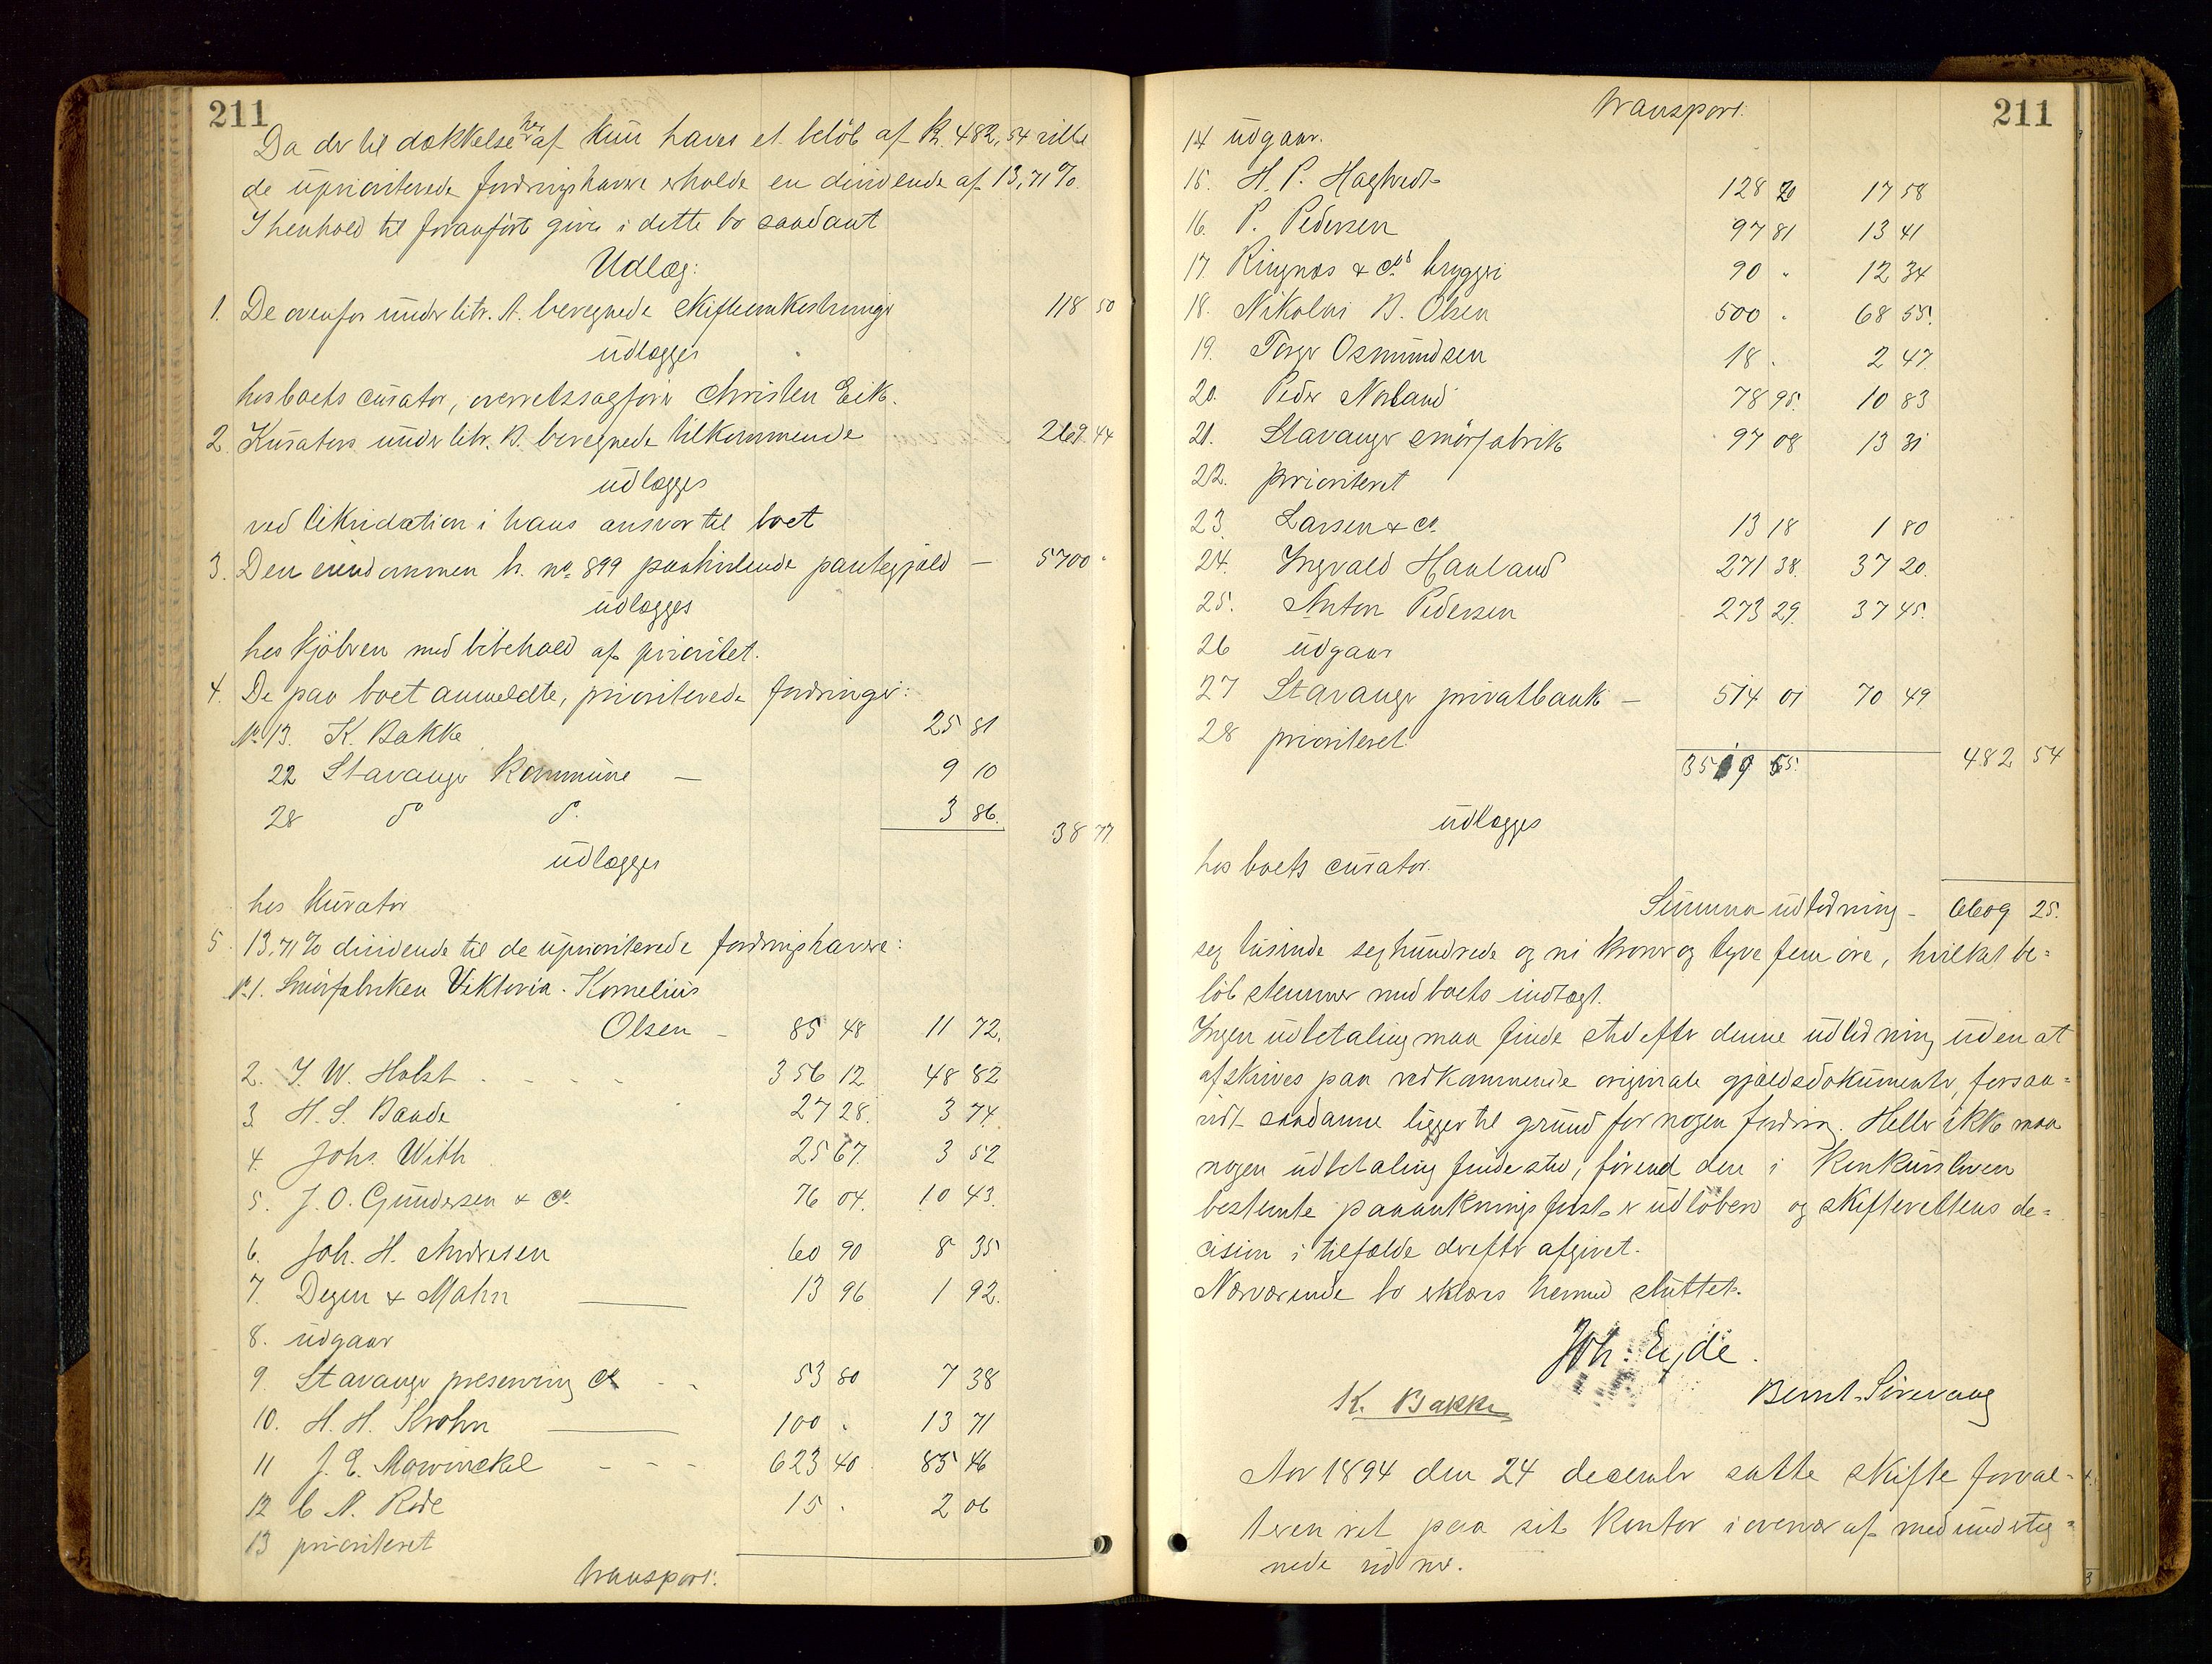 211
Da der til dækkelse heraf kun haves et beløb af Kr. 482,54 ville
de uprioriterede fordringshavere erholde en dividende af 13,71%.
I henhold til foranførte gives i dette bo saadant
Udlæg:
1. De ovenfor under litr. A. beregnede skifteomkostninger 118 50
udlægges
hos boets curator, overretssagfører Christen Eik.
2. Kurators under litr. B. beregnede tilkommende 269.44
udlægges
ved likvidation i hans ansvar til boet
3. Den eiendommen h. no. 899 paahvilende pantegjæld — 5700 "
udlægges
hos kjøberen med bibehold af prioritet.
4. De paa boet anmeldte, prioriterede fordringer:
No. 13. K. Bakke 25 81
22 Stavanger Kommune — 9 10
28 do do. 3 86.
38 77.
udlægges
hos Kurator
5. 13,71% dividende til de uprioriterede fordringshavere:
No. 1. Smørfabriken Viktoria. Kornelius
Olsen — 85 48 11 72.
2. J. W. Holst - - - - 356 12 48 82
3. H. S. Baade 27 28. 3 74.
4. Johs. With 25 67. 3 52
5. J. O. Gundersen & Co. 76 04. 10 43.
6. Joh. H. Andresen 60 90 8 35
7. Degen & Mahn — 13 96 1 92.
8. udgaar
9. Stavanger preserving Co - - 53 80 7 38
10. H. H. Krohn — 100 . 13 71
11 J. E. Mowinckel - - - 623 40 85 46
12 C. A. Rode 15 . 2 06
13 prioriteret
Transport:
Transport: 211
14 udgaar.
15. H. P. Hagtvedt 128 20 17 58
16. P. Pedersen 97 81 13 41
17. Ringnæs & Co's bryggeri 90 " 12 34
18. Nikolai B. Olsen 500 . 68 55.
19. Torger Osmundsen 18 . 2 47.
20. Peder Norland 78 95. 10 83
21. Stavanger smørfabrik 97 08 13 31
22. prioriteret
23. Larsen & Co. 13 18 1 80
24. Ingvald Haaland 271 38. 37 20.
25. Anton Pedersen 273 29. 37 45.
26 udgaar
27 Stavanger privatbank — 514 01 70 49
28 prioriteret
3519 65. 482 54
udlægges
hos boets curator.
Summa udlodning - 6609 25.
seg tusinde seghundrede og ni kroner og tyve fem øre, hvilket be=
løb stemmer med boets indtægt.
Ingen udbetaling maa finde sted efter denne udlodning uden at
afskrives paa vedkommende originale gjældsdokumenter, forsaa=
vidt saadanne ligger til grund for nogen fordring. Heller ikke maa
nogen udbetaling finde sted, førend den i Konkursloven
bestemte paaankningsfrist er udløben og skifterettens de=
cision i tilfælde derefter afgivet.
Nærværende bo erklæres hermed sluttet.
Joh. Eyde.
K. Bakke Bernt Sirevaag
Aar 1894 den 24 december satte skifteforval=
teren ret paa sit kontor i overvær af medunderteg=
nede vidner.